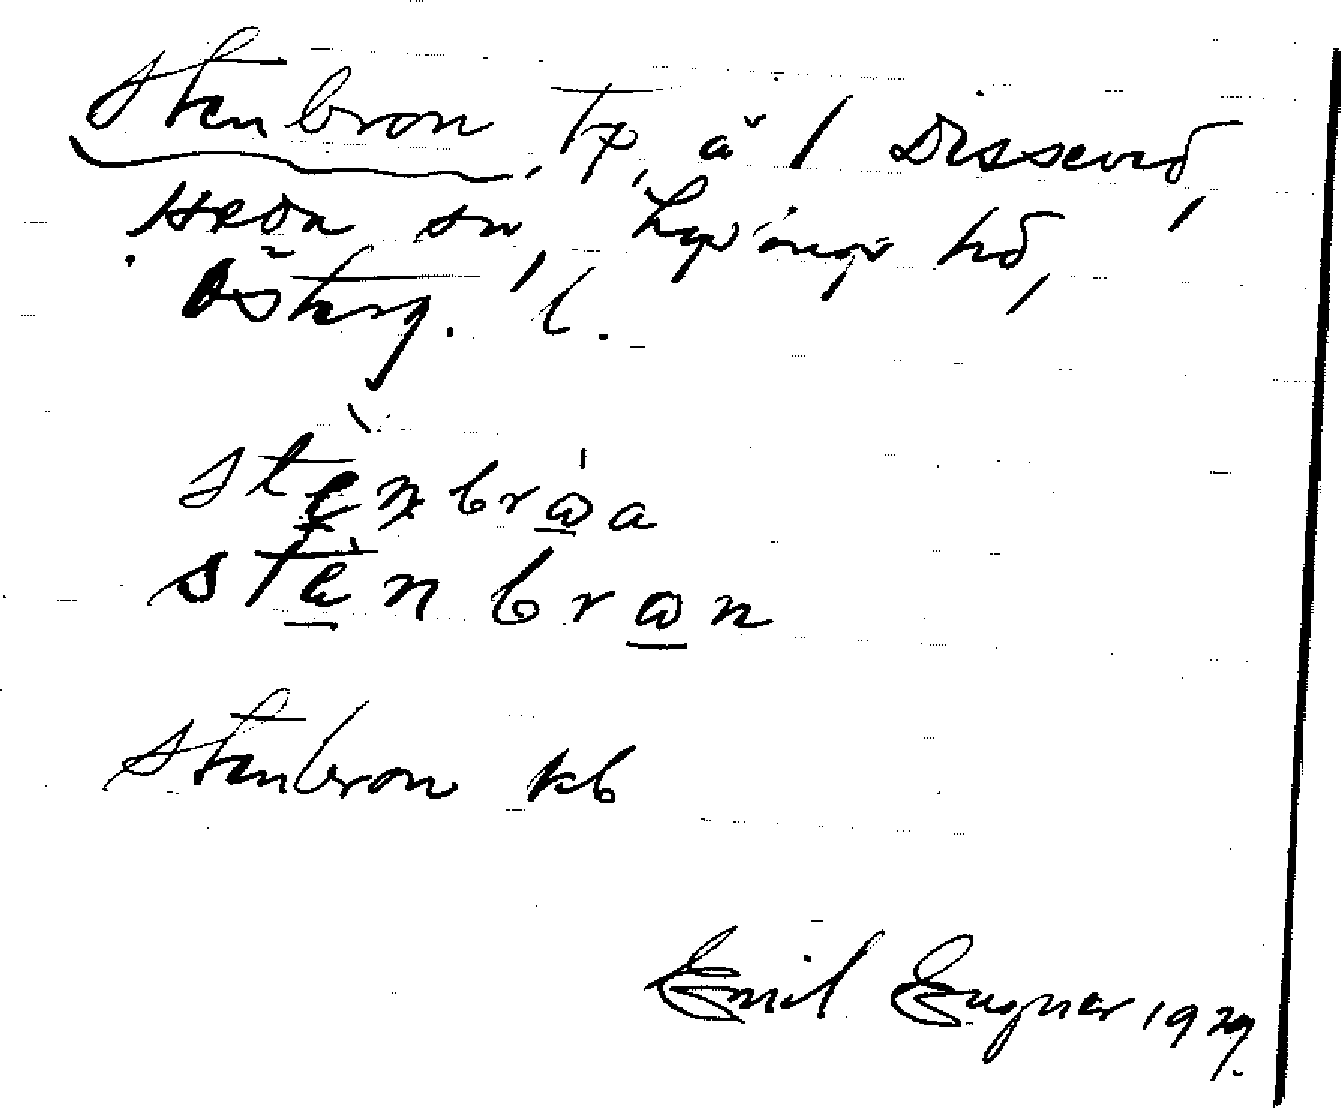 Stenbron, Tp, å / Disseviđ,
Heda sn, Lysings hd,
Östeg. l.
stènbròa
stèn bron
Stenbron kb
Emil Eugner 1929.